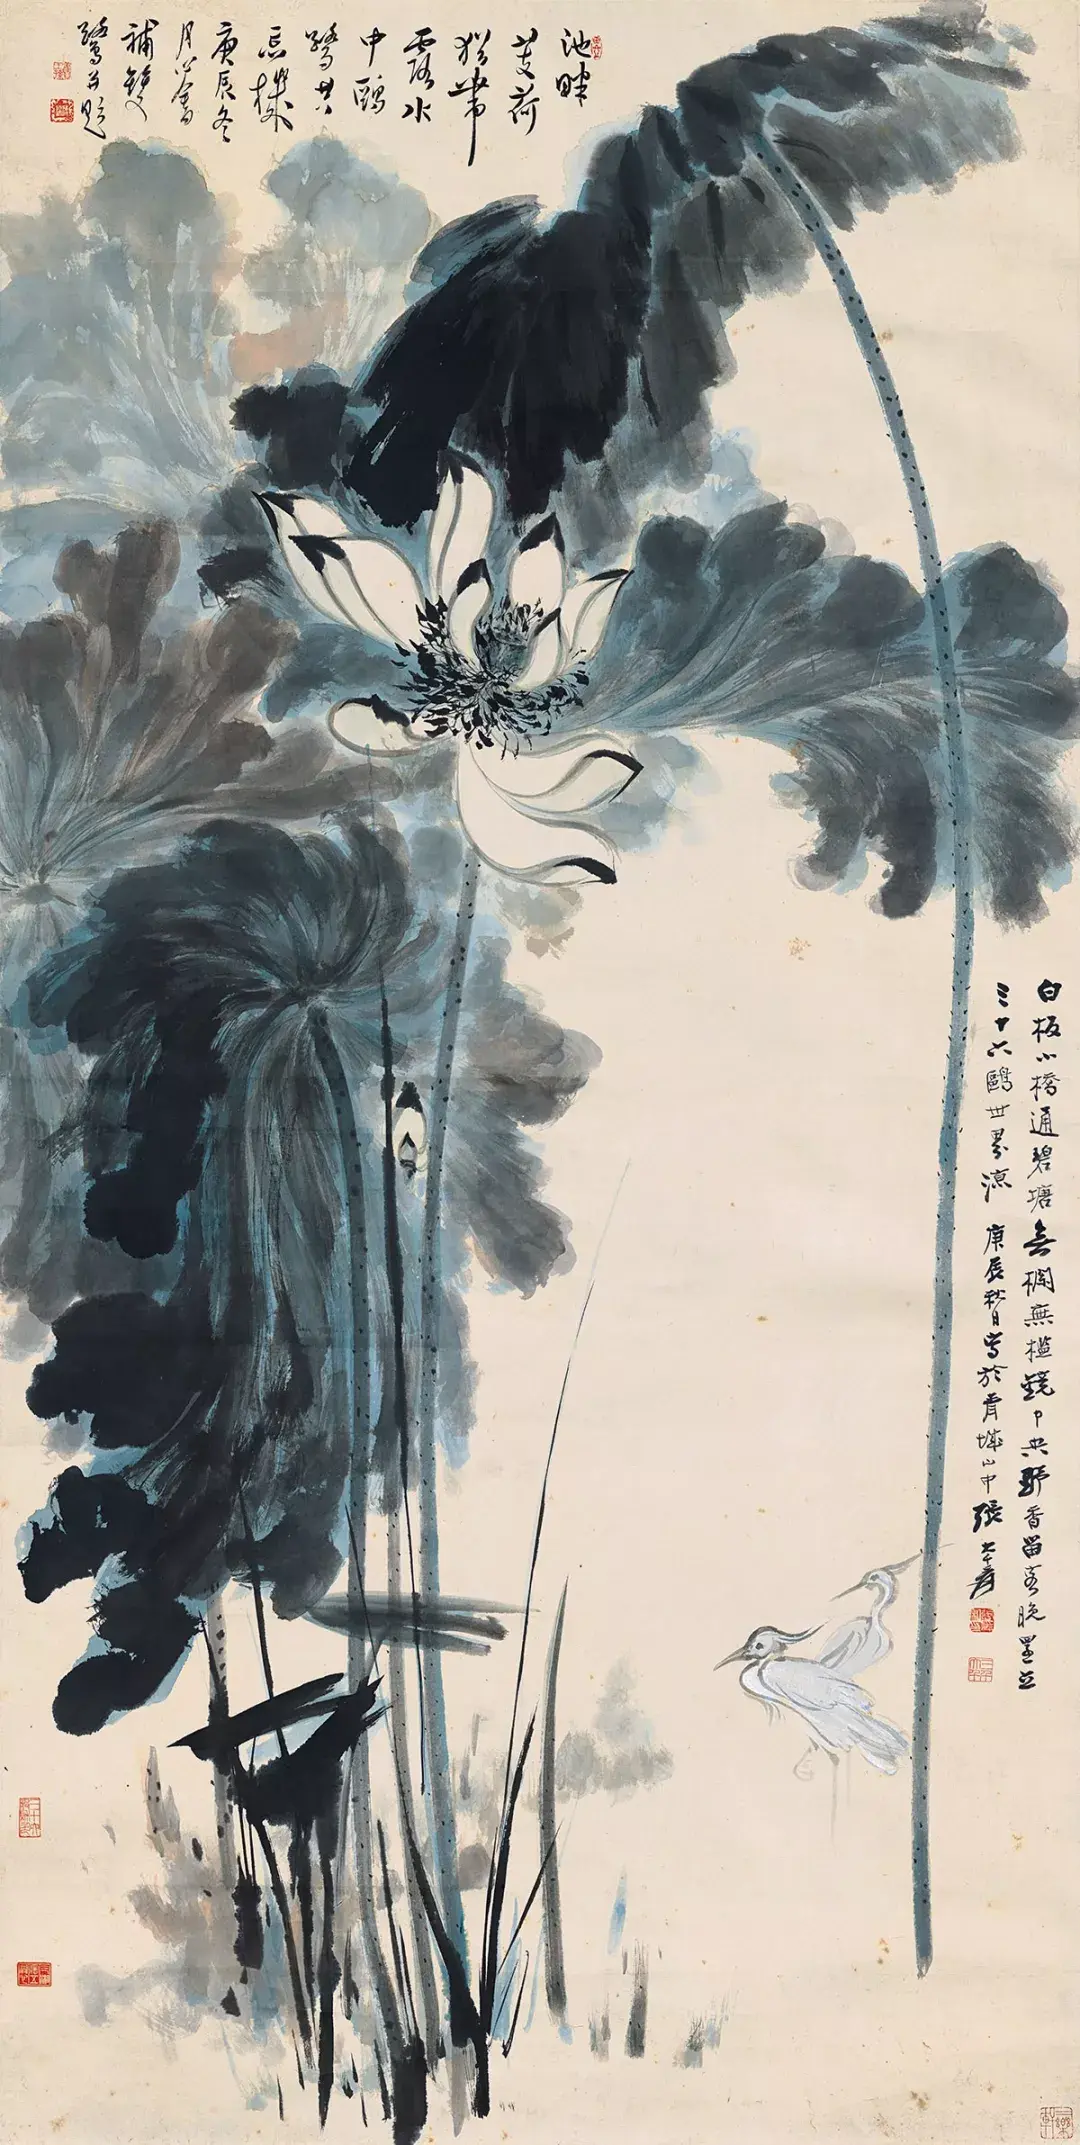 池畔
芰荷
猶帶
露水
中鷗
鷺共
忘機
庚辰冬
月心畬
補雙
鷺并題
白板小橋通碧塘無欄無檻鏡中央野香留客晚還立
三十六鷗世界涼 庚辰秋日寫於青城山中 張大千爰